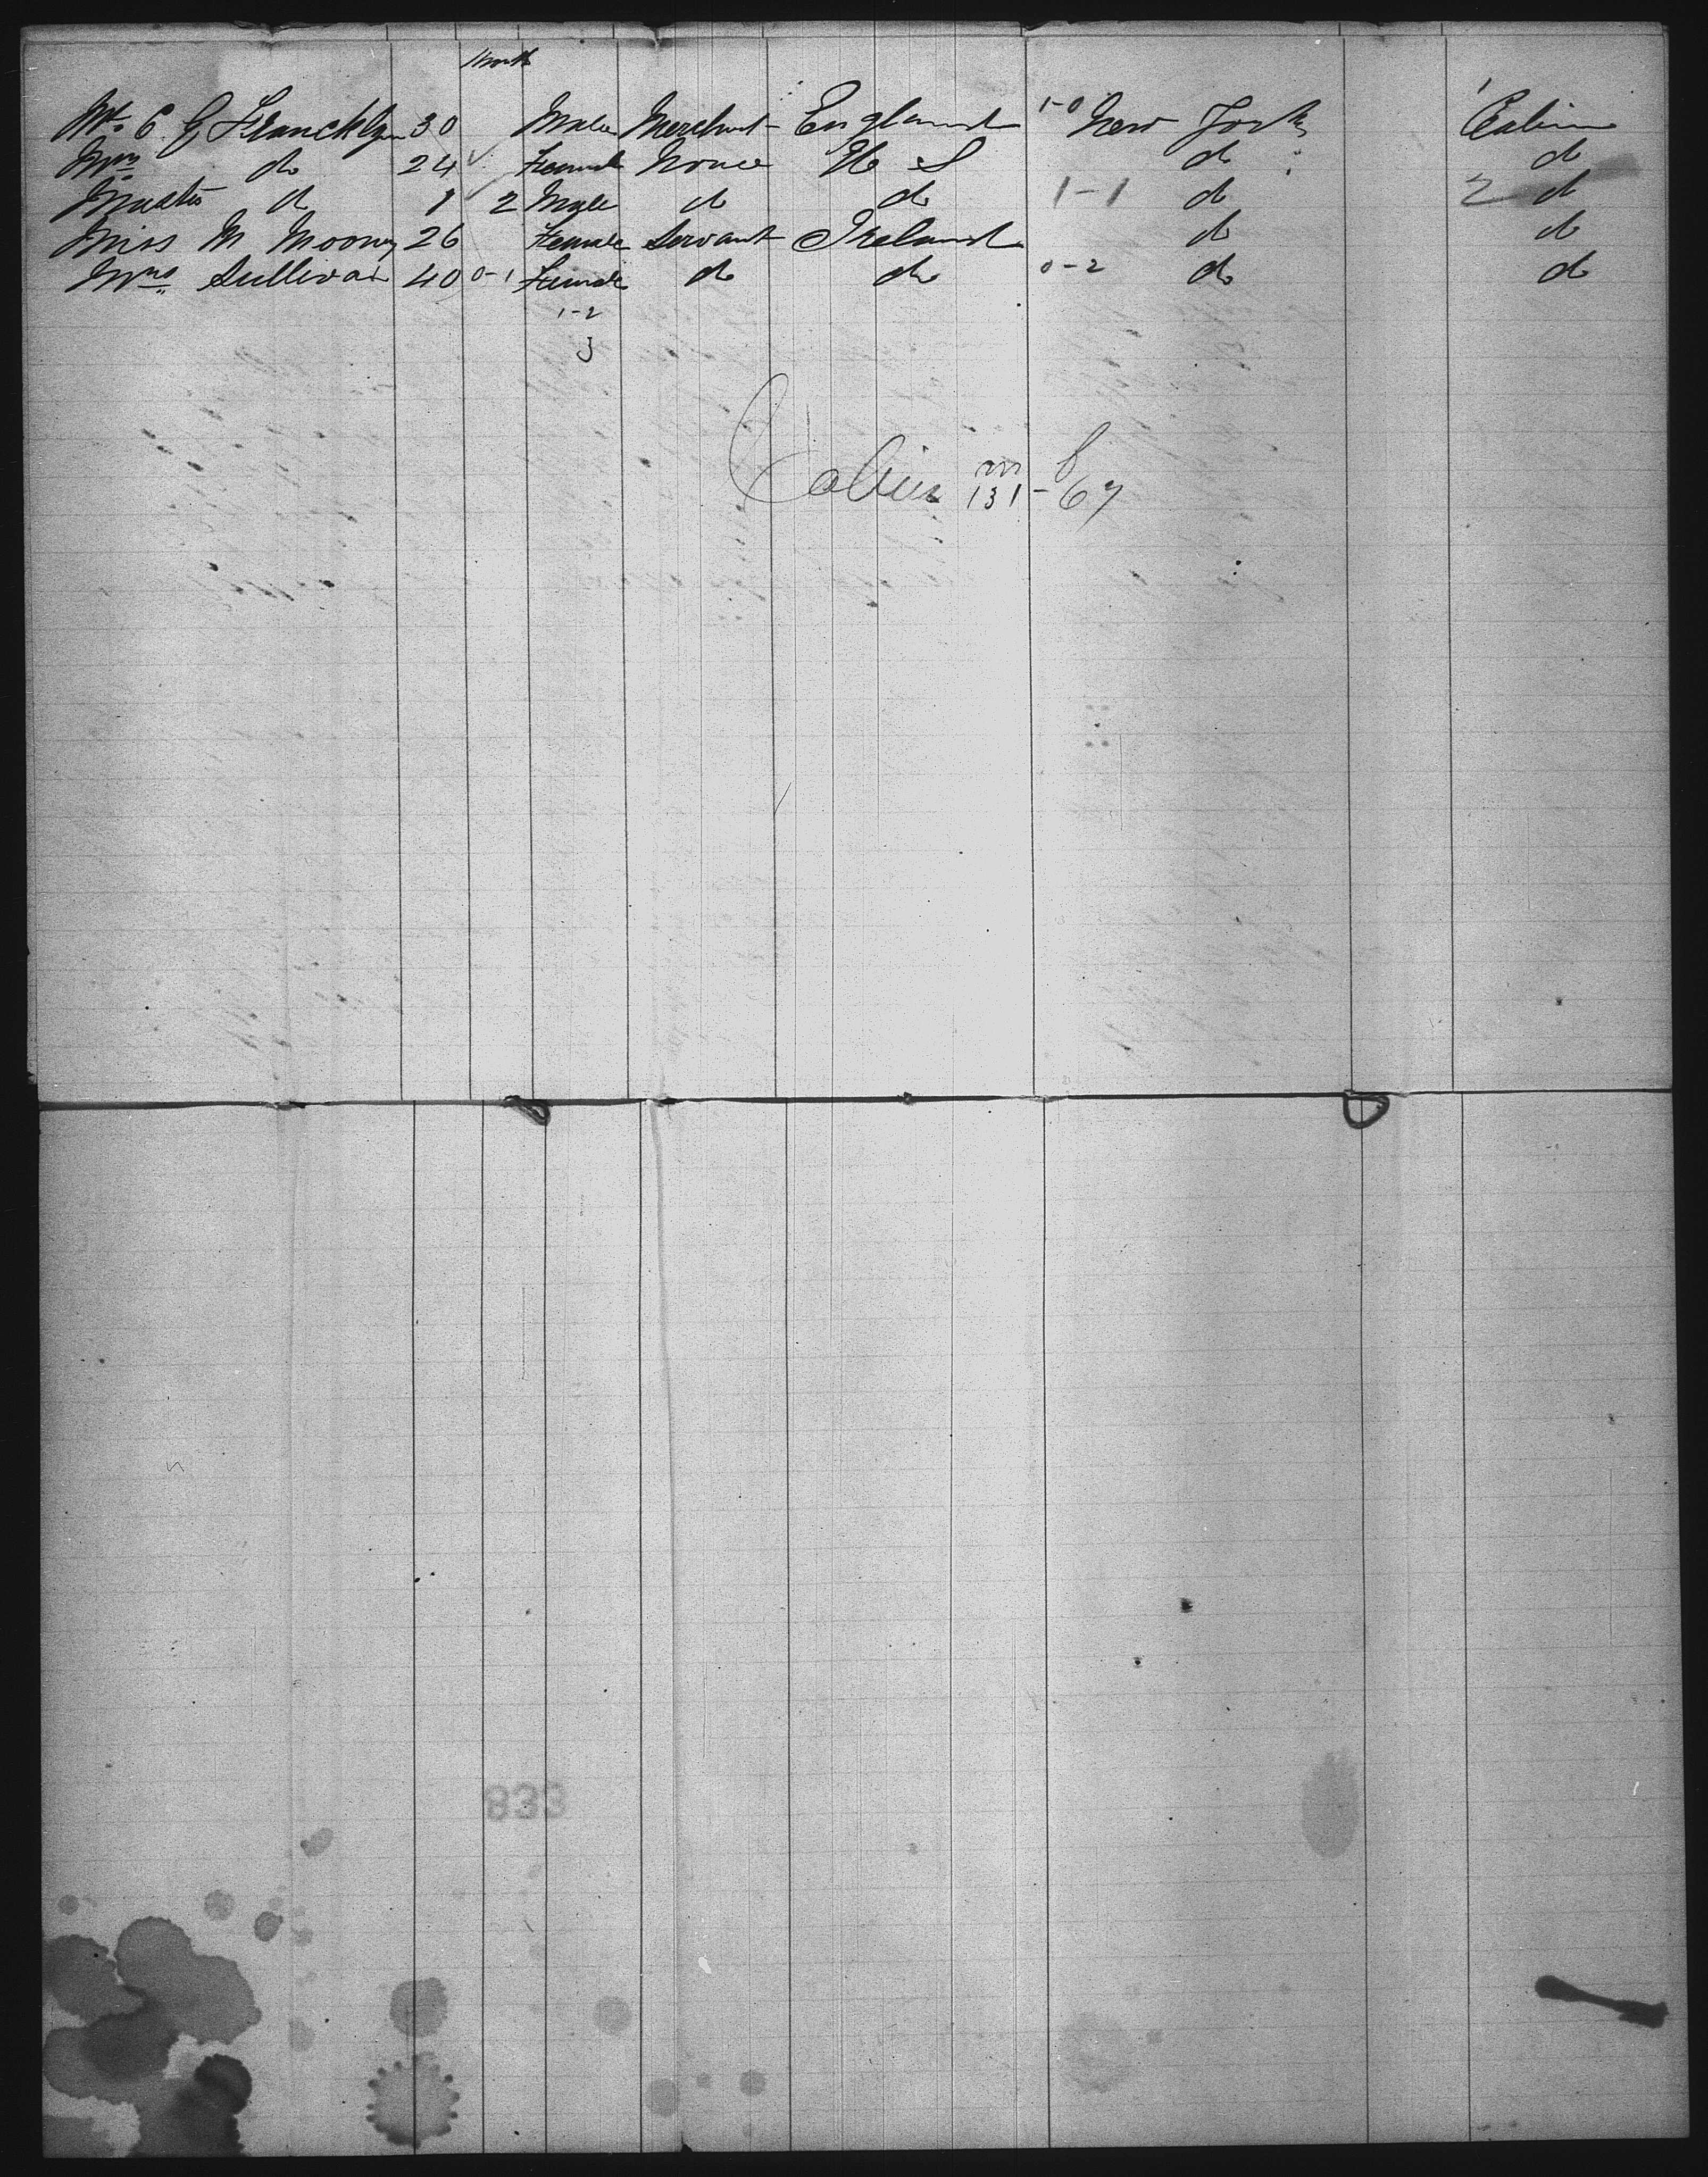 Month
Mr. C. G. Francklyn 30 Male Merchant England 1-0 New York Cabin
Mrs do 24 Female None U S do do
Master do 1 2 Male do do 1-1 do 2 do
Miss M Mooney 26 Female Servant Ireland do do
Mrs Sullivan 40 0-1 Female do do 0-2 do do
1-2
3
m f
Cabin 131-67
833